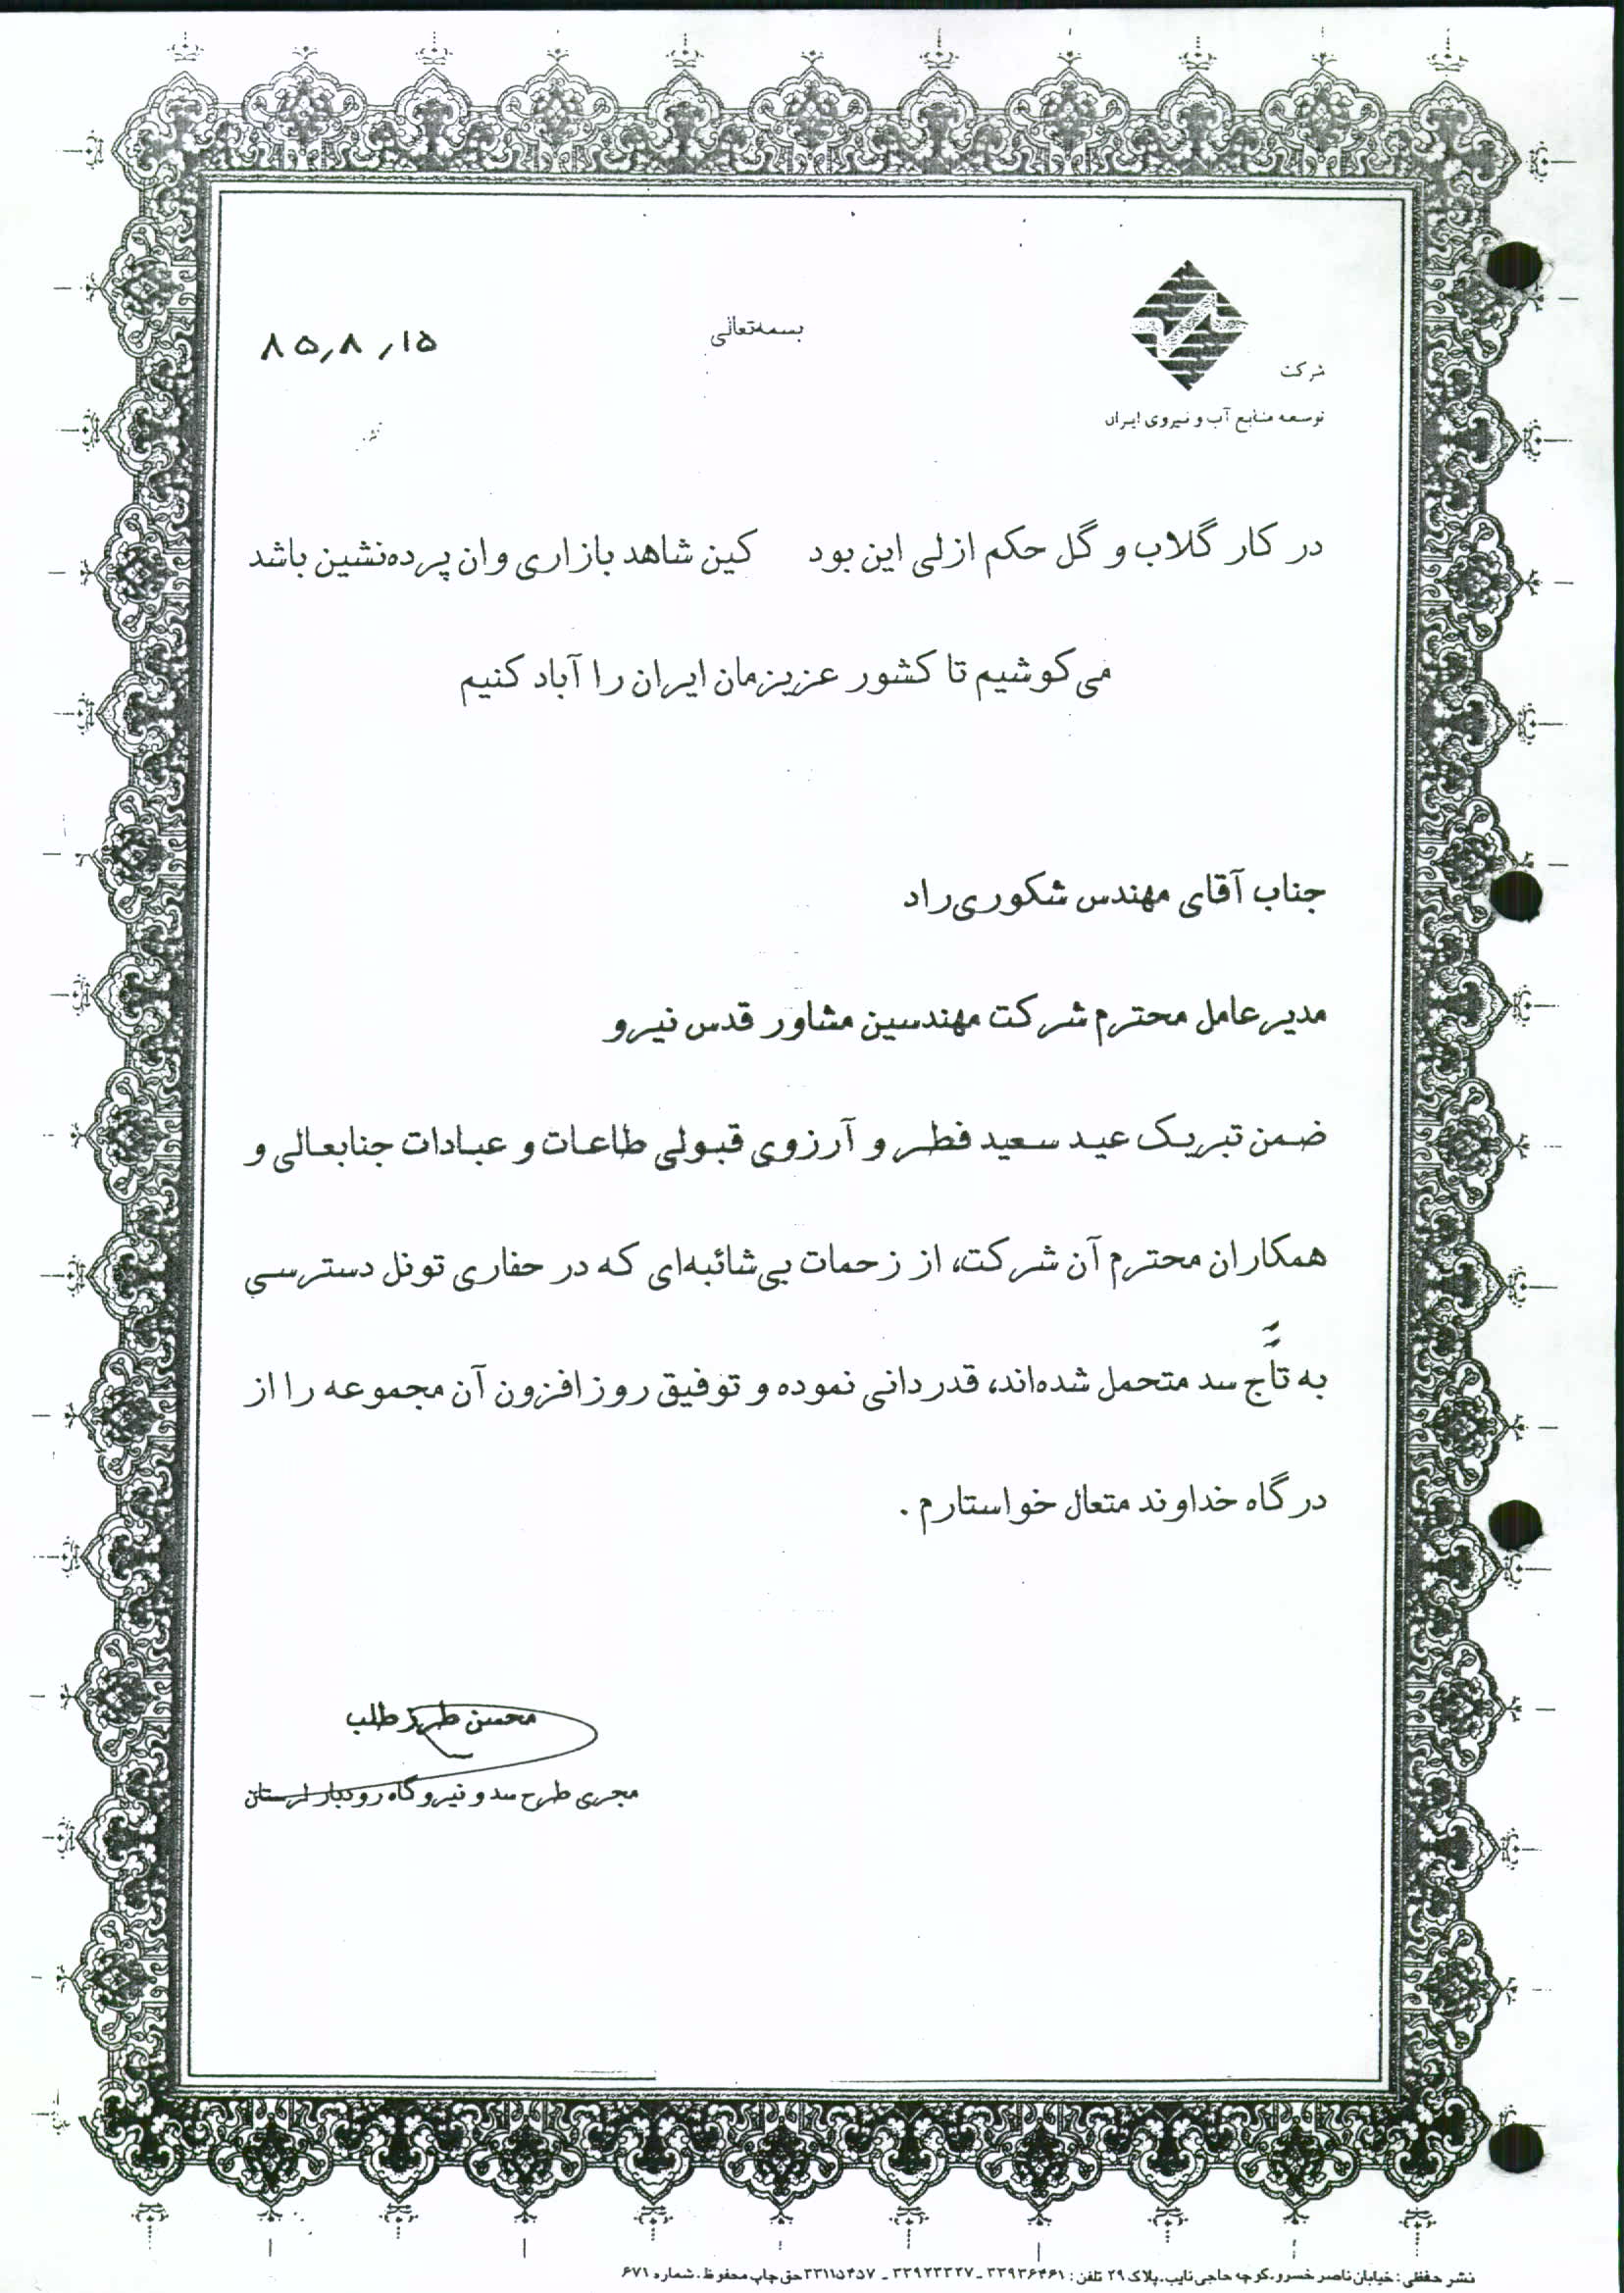 بسمه‌تعالی
۸۵٫۸٫۱۵
شرکت
توسعه منابع آب و نیروی ایران
در کار گلاب و گل حکم ازلی این بود    کین شاهد بازاری وان پرده‌نشین باشد
می‌کوشیم تا کشور عزیزمان ایران را آباد کنیم
جناب آقای مهندس شکوری‌راد
مدیرعامل محترم شرکت مهندسین مشاور قدس نیرو
ضمن تبریک عید سعید فطر و آرزوی قبولی طاعات و عبادات جنابعالی و
همکاران محترم آن شرکت، از زحمات بی‌شائبه‌ای که در حفاری تونل دسترسی
به تاج سد متحمل شده‌اند، قدردانی نموده و توفیق روزافزون آن مجموعه را از
درگاه خداوند متعال خواستارم .
محسن طرزطلب
مجری طرح سد و نیروگاه رودبار لرستان
نشر حفظی : خیابان ناصر خسرو، کوچه حاجی نایب، پلاک ۲۹ تلفن : ۳۳۹۳۶۴۶۱ - ۳۳۹۲۳۳۲۷ - ۳۳۱۱۵۴۵۷ حق چاپ محفوظ. شماره ۶۷۱